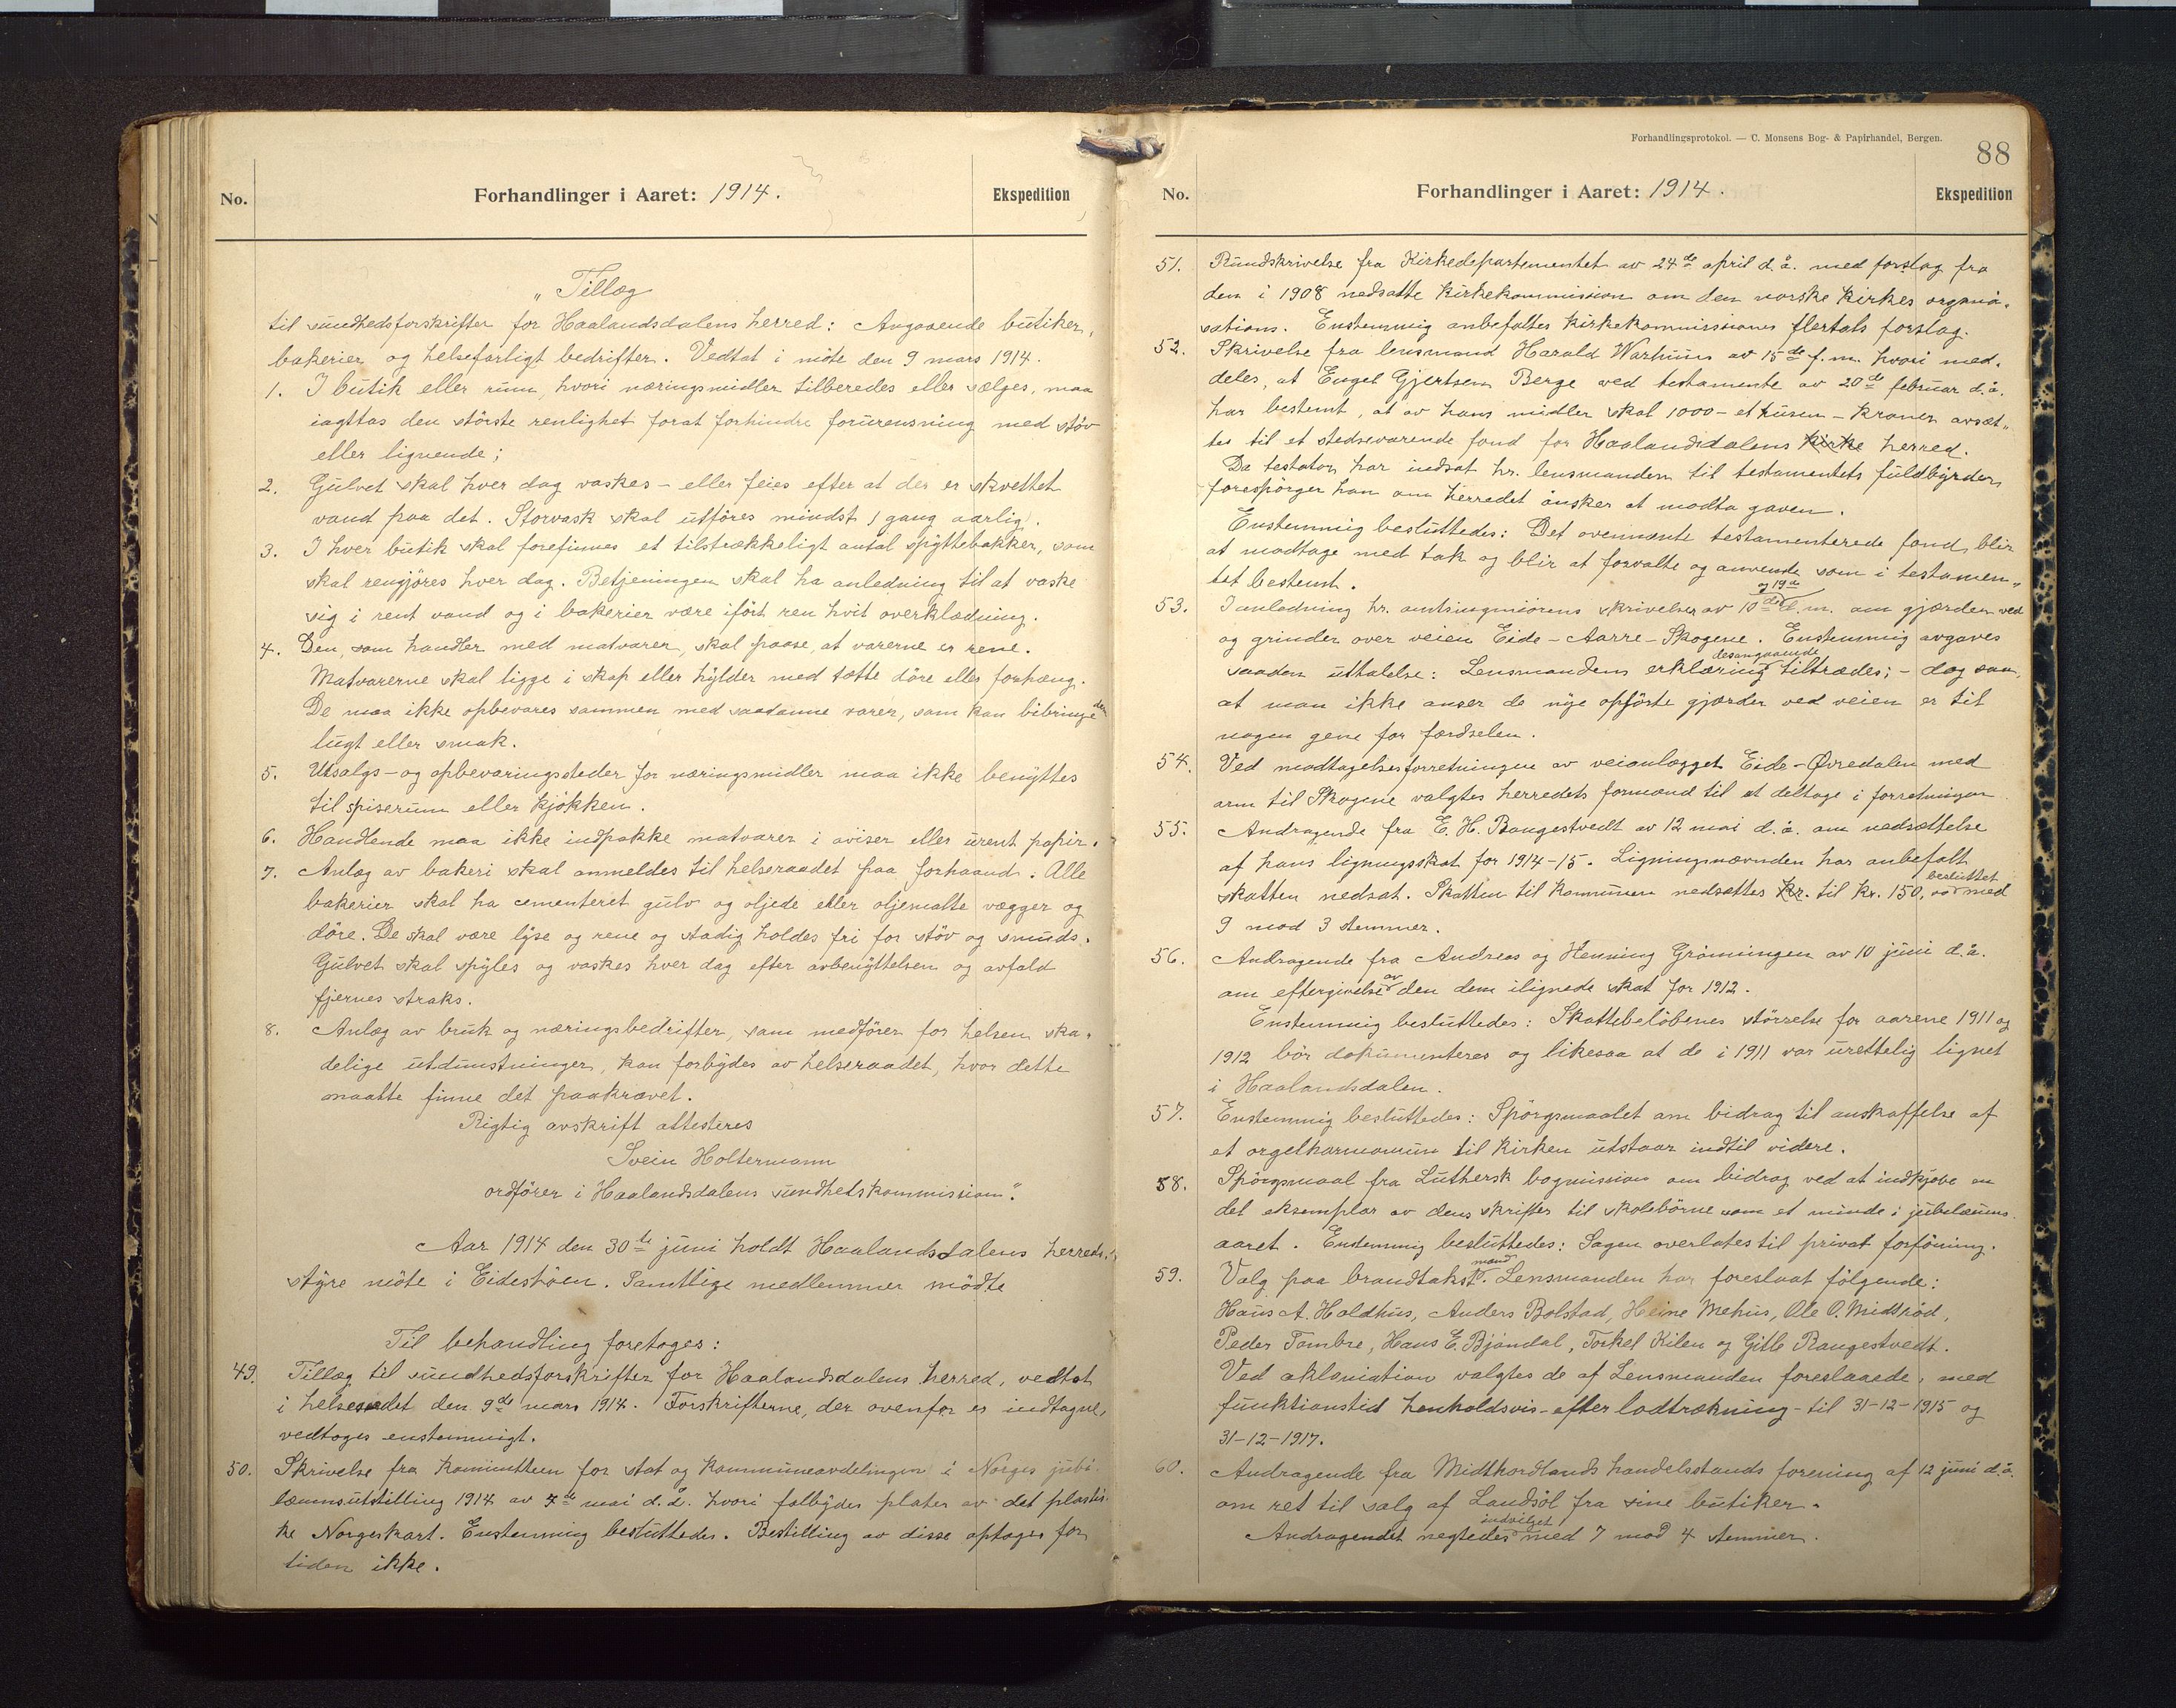 No.
Forhandlinger i Aaret: 1914.
Ekspedition
"Tillæg
til sundhedsforskrifter for Haalandsdalens herred: Angaaende butiker,
bakerier og helsefarligt bedrifter. Vedtat i möte den 9 mars 1914.
1. I butik eller rum, hvori næringsmidler tilberedes eller sælges, maa
iagttas den störste renlighet forat forhindre forurensning med stöv
eller lignende;
2. Gulvet skal hver dag vaskes - eller feies efter at der er skvettet
vand paa det. Storvask skal utföres mindst 1 gang aarlig.
3. I hver butik skal forefinnes et tilstrækkeligt antal spyttebakker, som
skal rengjöres hver dag. Betjeningen skal ha anledning til at vaske
sig i rent vand og i bakerier være ifört ren hvit overklædning.
4. Den, som handler med matvarer, skal paase, at varerne er rene.
Matvarerne skal ligge i skap eller hylder med tætte döre eller forhæng.
De maa ikke opbevares sammen med saadanne varer, som kan bibringe dem
lugt eller smak.
5. Utsalgs- og opbevaringssteder for næringsmidler maa ikke benyttes
til spiserum eller kjökken.
6. Handlende maa ikke indpakke matvarer i aviser eller urent papir.
7. Anlæg av bakeri skal anmeldes til helseraadet paa forhaand. Alle
bakerier skal ha cementeret gulv og oljede eller oljemalte vægger og
döre. De skal være lyse og rene og stadig holdes fri for stöv og smuds.
Gulvet skal spyles og vaskes hver dag efter avbenyttelsen og avfald
fjernes straks.
8. Anlæg av bruk og næringsbedrifter, som medförer for helsen ska-
delige utdunstninger, kan forbydes av helseraadet, hvor dette
maatte finne det paakrævet.
Rigtig avskrift attesteres
Svein Holtermann
ordförer i Haalandsdalens sundhetskommission".
Aar 1914 den 30te juni holdt Haalandsdalens herreds-
styre möte i Eideshöen. Samtlige medlemmer mödte
Til behandling foretoges:
49. Tillæg til sundhedsforskrifter for Haalandsdalens herred, vedtat
i helseraadet den 9de mars 1914. Forskrifterne, der ovenfor er indtagne,
vedtoges enstemmigt.
50. Skrivelse fra komiiteen for stat og kommuneavdelingen i Norges jubi-
læumsutstilling 1914 av 7de mai d.å. hvori falbydes plater av det plastis-
ke Norgeskart. Enstemmig besluttedes. Bestilling av disse optages for
tiden ikke.
Forhandlingsprotokol. — C. Monsens Bog- & Papirhandel, Bergen.
88
No.
Forhandlinger i Aaret: 1914.
Ekspedition
51. Rundskrivelse fra Kirkedepartementet av 24de april d.å. med forslag fra
den i 1908 nedsatte Kirkekommission om den norske kirkes organi-
sations. Enstemmig anbefaltes kirkekommissionens flertals forslag.
52. Skrivelse fra lensmand Harald Warhuus av 15de f.m. hvori med-
deles, at Engel Gjertsen Berge ved testamente av 20de februar d.å.
har bestemt, at av hans midler skal 1000 - et tusen - kroner avsæt-
tes til et stedsevarende fond for Haalandsdalens kirke herred.
Da testator har indsat hr. lensmanden til testamentets fuldbyrder,
forespörger han om herredet önsker at modta gaven.
Enstemmig besluttedes: Det ovennævnte testamenterede fond blir
at modtage med tak og blir at forvalte og anvende som i testamen-
tet bestemt.
53. I anledning hr. amtsingeniörens skrivelser av 10de og 19de d.m. om gjærder ved
og grinder over veien Eide - Aarre - Skogene. Enstemmig avgaves
saadan uttalelse: Lensmandens erklæring desangaaende tiltrædes; - dog saa,
at man ikke anser de nye opförte gjærder ved veien er til
nogen gene for færdselen.
54. Ved modtagelsesforretningen av veianlægget Eide - Øvredalen med
arm til Skogene valgtes herredets formand til at deltage i forretningen
55. Andragende fra E. H. Bangestvedt av 12 mai d.å. om nedsættelse
af hans ligningsskat for 1914-15. Ligningsnævnden har anbefalt
skatten nedsat. Skatten til kommunen nedsættes kr. til kr. 150, besluttet med
9 mod 3 stemmer.
56. Andragende fra Andreas og Henning Gröningen av 10 juni d.å.
om eftergivelse av den dem ilignede skat for 1912.
Enstemmig besluttedes: Skattebelöbenes störrelse for aarene 1911 og
1912 bör dokumenteres og likesaa at de i 1911 var urettelig lignet
i Haalandsdalen.
57. Enstemmig besluttedes: Spörgsmaalet om bidrag til anskaffelse af
et orgelharmonium til kirken utstaar indtil videre.
58. Spörgsmaal fra Luthersk bogmission om bidrag ved at indkjøbe en
del eksemplar av dens skrifter til skolebörne som et minde i jubilæums-
aaret. Enstemmig besluttedes: Sagen overlates til privat forföining.
59. Valg paa brandtakstmænd. Lensmanden har foreslaat fölgende:
Hans A. Holdhus, Anders Bolstad, Heine Mehus, Ole O. Midtröd,
Peder Tombre, Hans E. Bjöndal, Torkel Kilen og Gitle Rangestvedt.
Ved aklamation valgtes de af Lensmanden foreslaaede, med
funktionstid henholdsvis - efter lodtrækning - til 31-12-1915 og
31-12-1917.
60. Andragende fra Midthordlands handelsstands forening af 12 juni d.å.
om ret til salg af Landsöl fra sine butiker.
Andragendet negtedes indvilget med 7 mod 4 stemmer.